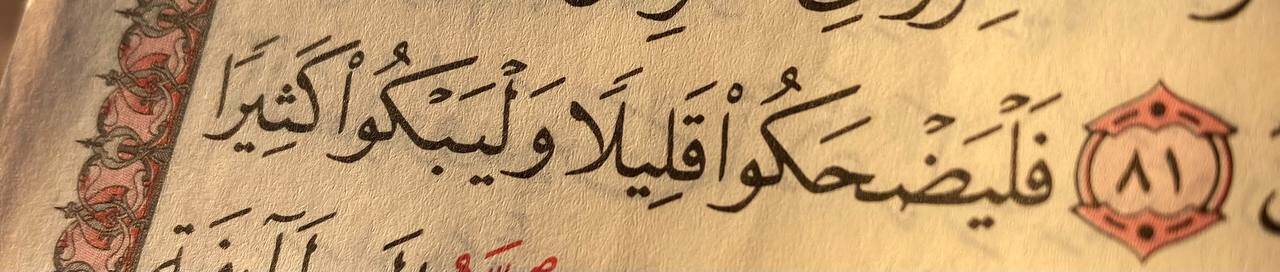 ٨١ فَلْيَضْحَكُوا۟ قَلِيلًا وَلْيَبْكُوا۟ كَثِيرًا